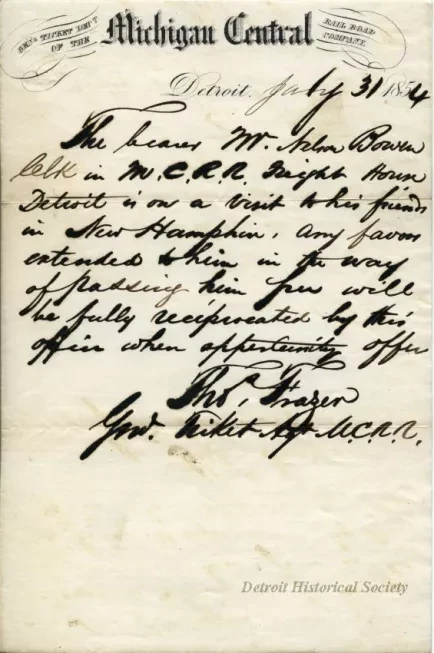 GEN'L TICKET DEP'T
OF THE
Michigan Central
RAIL ROAD
COMPANY.
Detroit, July 31 1854
The bearer Mr. Nelson Bowen
Clk in M.C.R.R. Freight House
Detroit is on a visit to his friends
in New Hampshire. Any favors
extended to him in the way
of passing him free will
be fully reciprocated by this
office when opportunity offers
Thos. Frazer
Genl. Ticket Agt M.C.R.R.
Detroit Historical Society